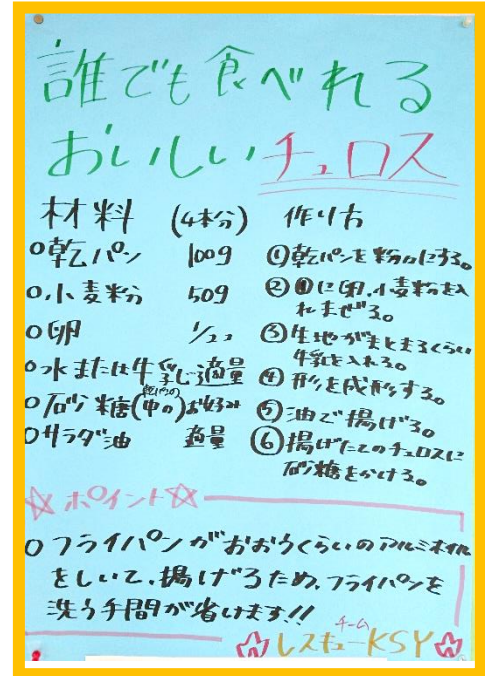 誰でも食べれる
おいしいチュロス
材料 (4本分)
○乾パン 100g
○小麦粉 50g
○卵 1/2コ
○水または牛乳 適量
○砂糖(乾パンの中の)お好み
○サラダ油 適量
作り方
①乾パンを粉々にする。
②①に卵、小麦粉を入
れまぜる。
③生地がまとまるくらい
牛乳を入れる。
④形を成形する。
⑤油で揚げる。
⑥揚げたてのチュロスに
砂糖をかける。
☆ポイント☆
○フライパンがおおうくらいのアルミホイル
をしいて、揚げるため、フライパンを
洗う手間が省けます!!
☆レスキューチームKSY☆